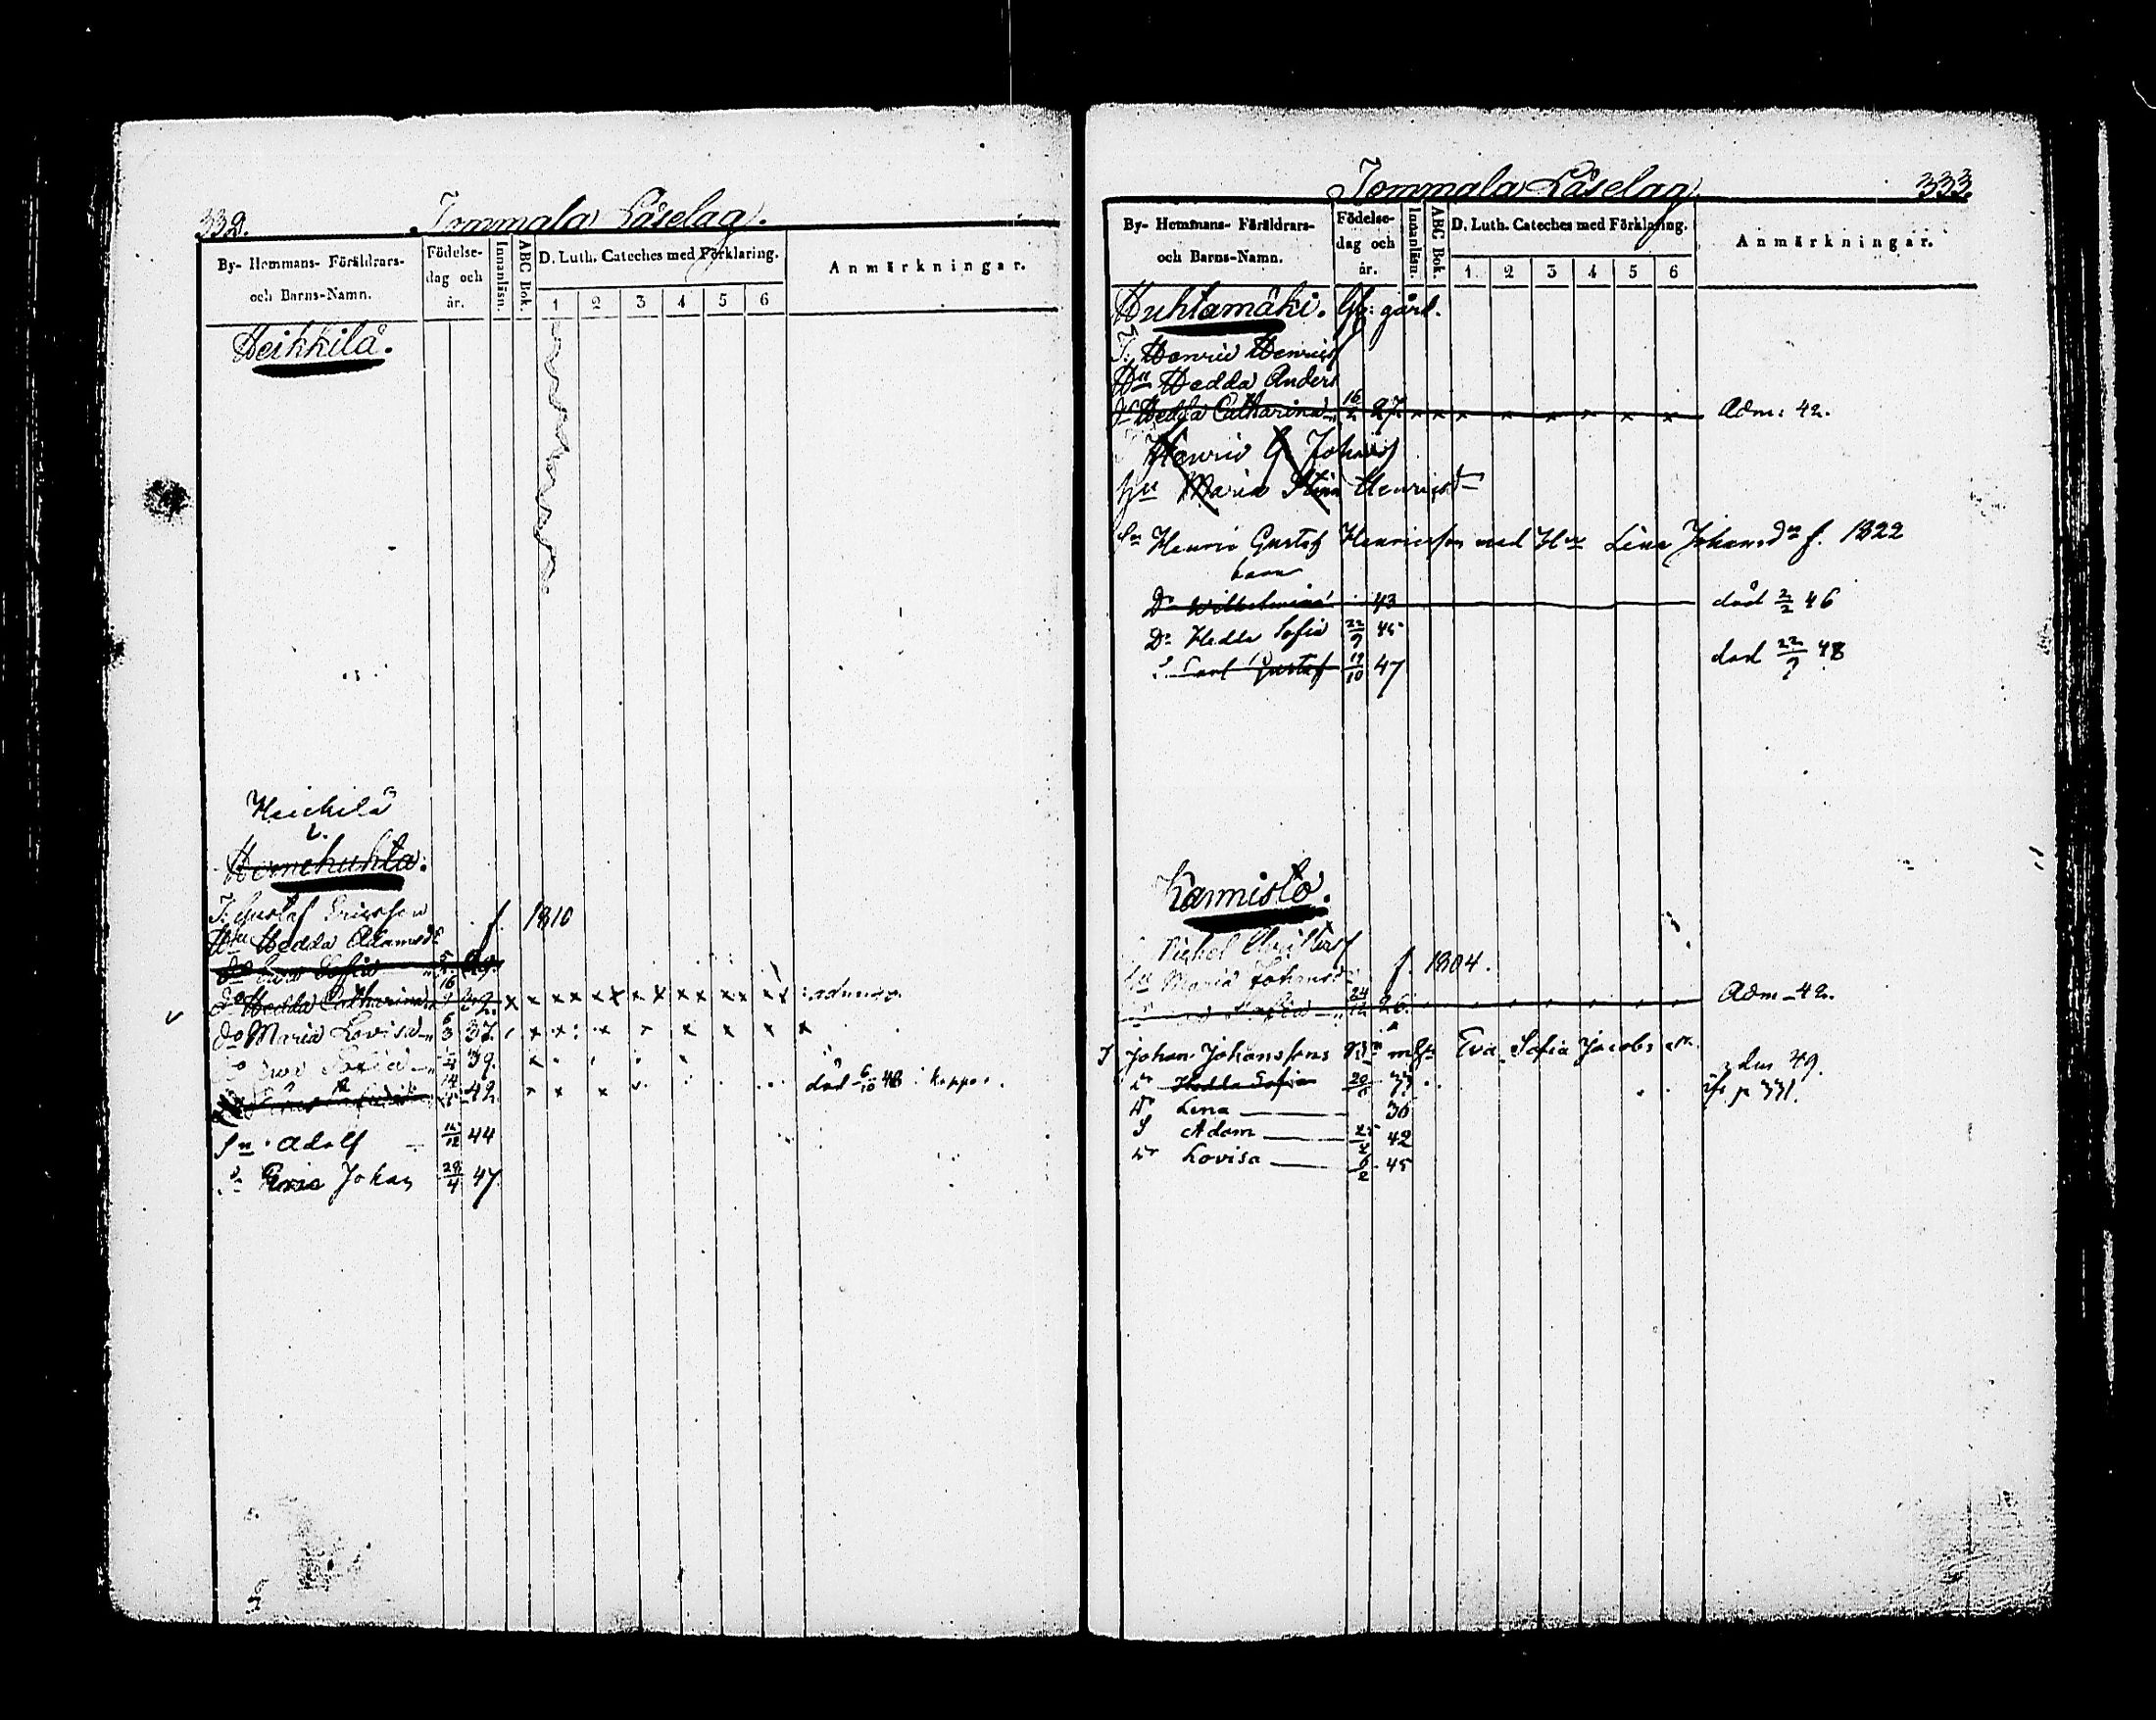 332.
Jommala Låselag.
By- Hemmans- Föräldrars- och Barns-Namn.
Födelse-dag och år.
Innanläsn.
ABC Bok.
D. Luth. Cateches med Förklaring.
1 2 3 4 5 6
Anmärkningar.
Heikkilä.
Heickilä
Hernehuhta.
T: Gustaf Ericsson
Hu Hedda Adamsdr f. 1810
do Eva Sofia
do Hedda Catharina 32. x x x x x x x x x x x x x
do Maria Lovisa 6/3 37. x x x x x x x
do Sofia 39.
42. död 6/10 48 koppor.
Sn Adolf 12/12 44
Sn Eric Johan 29/4 47
Jommala Låselag.
333.
By- Hemmans- Föräldrars- och Barns-Namn.
Födelse-dag och år.
Innanläsn.
ABC Bok.
D. Luth. Cateches med Förklaring.
1. 2 3 4 5 6
Anmärkningar.
Huhtamäki.
T: Henric Henricss
Hu Hedda Anders
dr Hedda Catharina 16/2 27. Adm: 42.
Henric G. Johanss
hu Maria Stina Henricsd
Sn Henric Gustaf Henricsson med Hu Lena Johansdr f. 1822
barn
Dr Wilhelmina 43 död 2/2 46
Dr Hedda Sofia 22/9 45
S. Carl Gustaf 19/10 47 död 22/9 48
Kannisto.
Michel Christerss
Hu Maria Johansdr f. 1804.
Sofia 24/12 26. Adm 42.
Johan Johanssons Eva Sofia Jacobs
Dr Hedda Sofia 33 adm 49.
p 331.
Dr Lena 36
S Adam 42
Dr Lovisa 6/2 45